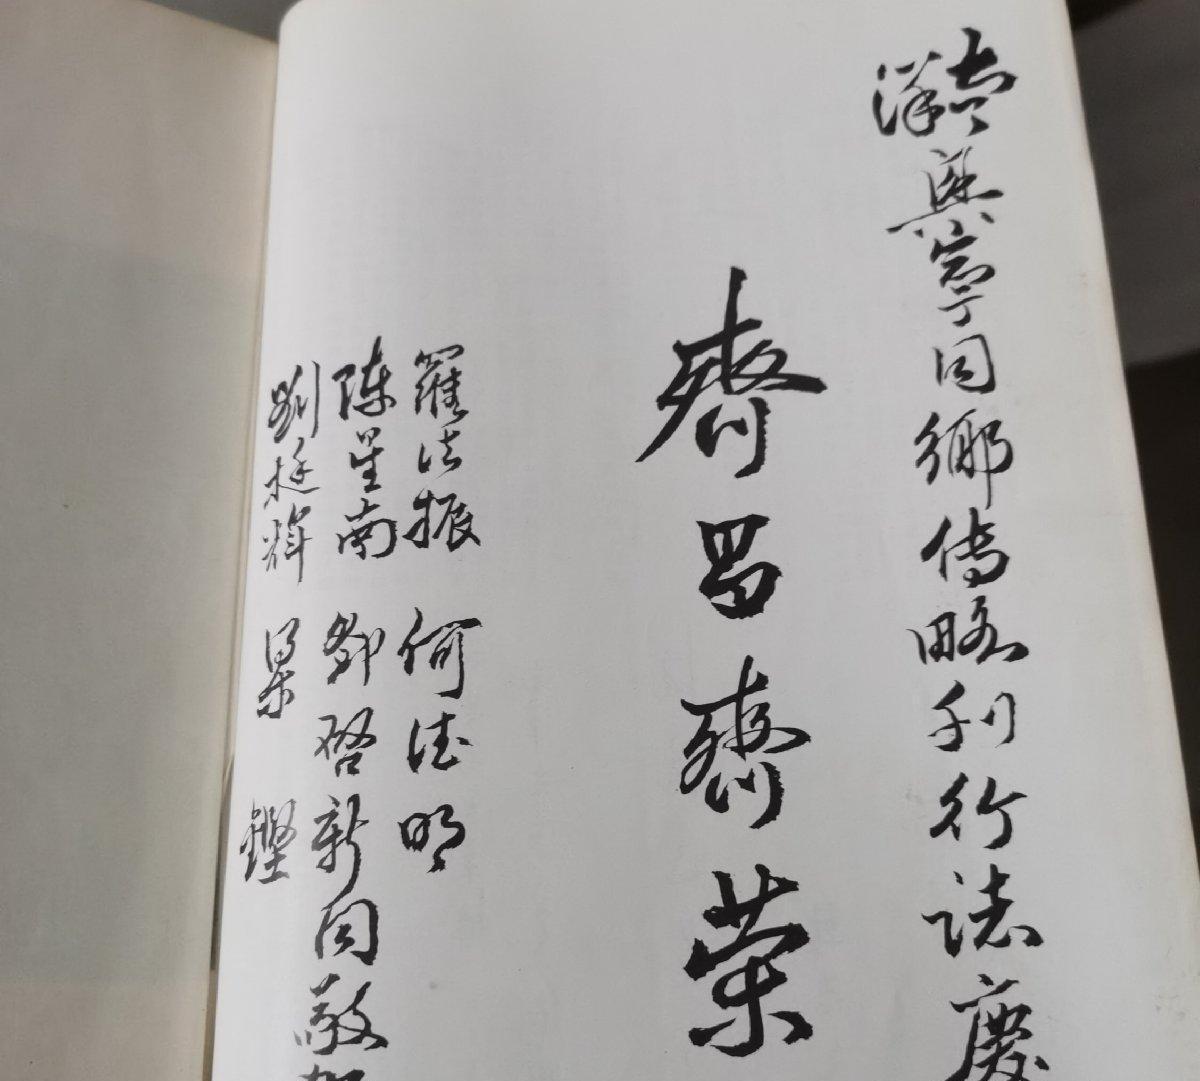 興寧同鄉傳略刊行誌慶
齊昌齊榮
羅法振 何德明
陳星南 鄧啓新 同敬賀
劉挺輝 梁鏗